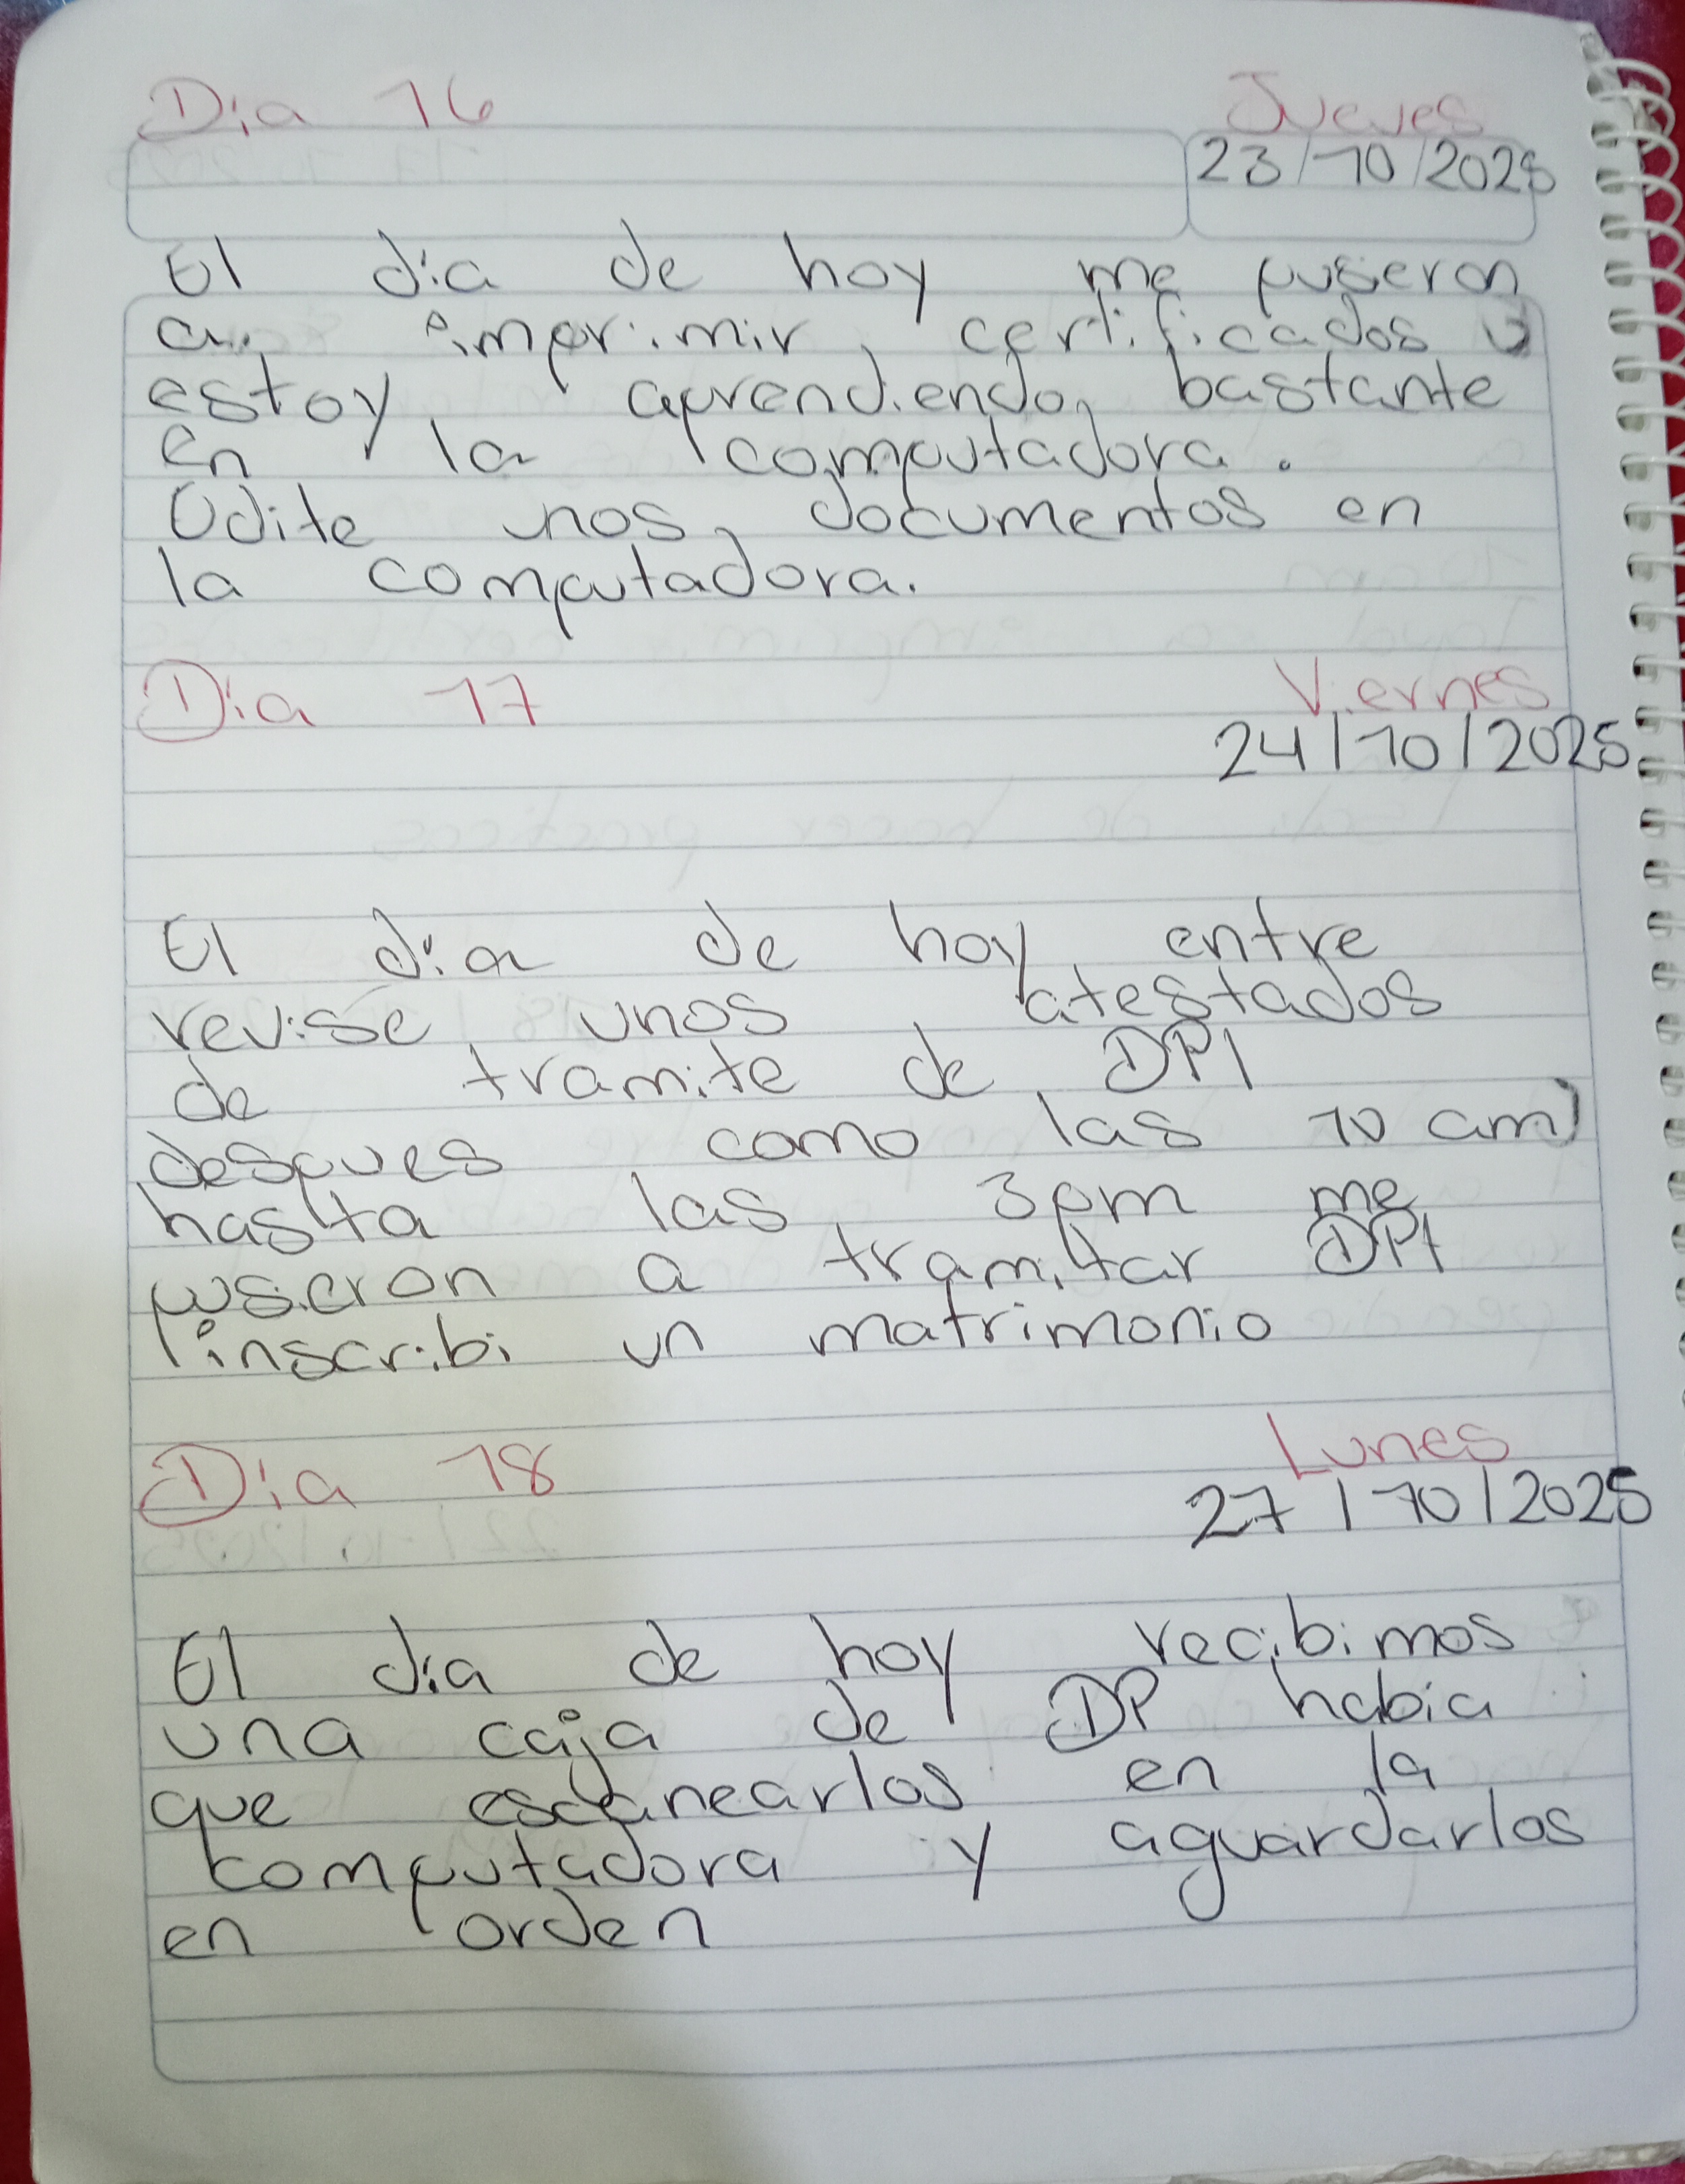 Dia 16 Jueves
23/10/2025
El dia de hoy me puseron
a imprimir certificados y
estoy aprendiendo bastante
en la computadora.
Edite unos documentos en
la computadora.
Dia 17 Viernes
24/10/2025
El dia de hoy entre
revise unos atestados
de tramite de DPI
despues como las 10 am
hasta las 3pm me
puseron a tramitar DPI
inscribi un matrimonio
Dia 18 Lunes
27/10/2025
El dia de hoy recibimos
una caja de DP habia
que escanearlos en la
computadora y aguardarlos
en orden